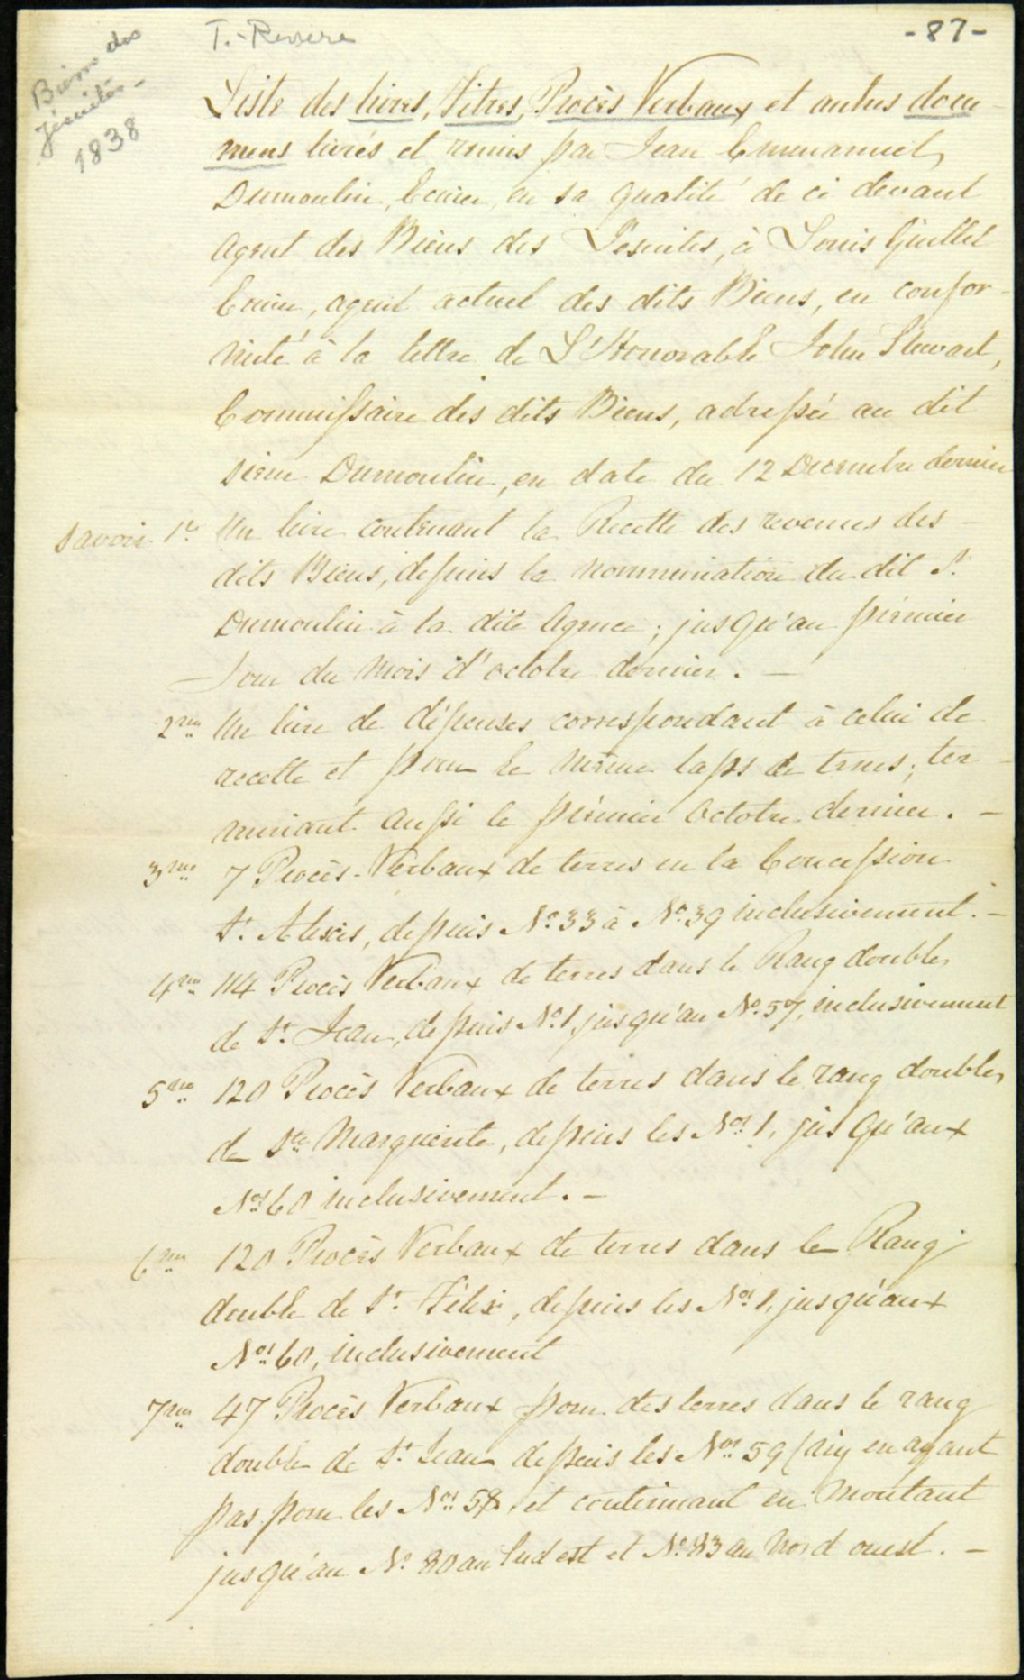 T.-Riviere
-87-
Biens des
Jésuites-
1838
Liste des livres, Titres, Procès Verbaux et autres docu-
mens livrés et remis par Jean Emmanuel
Dumoulin, Ecuier, en sa qualité de ci devant
Agent des Biens des Jesuites, à Louis Guillet
Ecuier, agent actuel des dits Biens, en confor-
mité à la lettre de L'Honorable John Stewart,
Commissaire des dits Biens, adressée au dit
sieur Dumoulin, en date du 12 Decembre dernier
Savoir 1er Un livre contenant la Recette des revenus des
dits Biens, depuis la nommination du dit Sr.
Dumoulin à la dite Agence; jusqu'au prémier
Jour du Mois d'octobre dernier. —
2me Un livre de dépenses correspondant à celui de
recette et pour le même laps de tems; ter-
minant aussi le prémier Octobre dernier. —
3me 7 Procès-Verbaux de terres en la Concession
St. Alexis, depuis No. 33 à No. 39 inclusivement. —
4me 114 Procès Verbaux de terres dans le Rang double
de St. Jean, depuis No. 1, jusqu'au No. 57, inclusivement
5me 120 Procès Verbaux de terres dans le rang double
de Ste. Marguerite, depuis les Nos. 1, jusqu'aux
Nos. 60 inclusivement. —
6me 120 Procès Verbaux de terres dans le Rang
double de St. Félix, depuis les Nos. 1, jusqu'aux
Nos. 60, inclusivement
7me 47 Procès Verbaux pour des terres dans le rang
double de St. Jean depuis les Nos. 59 (ny en ayant
pas pour les Nos. 58, et continuant en montant
jusqu'au No. 80 au Sud est et No. 83 au Nord ouest. —